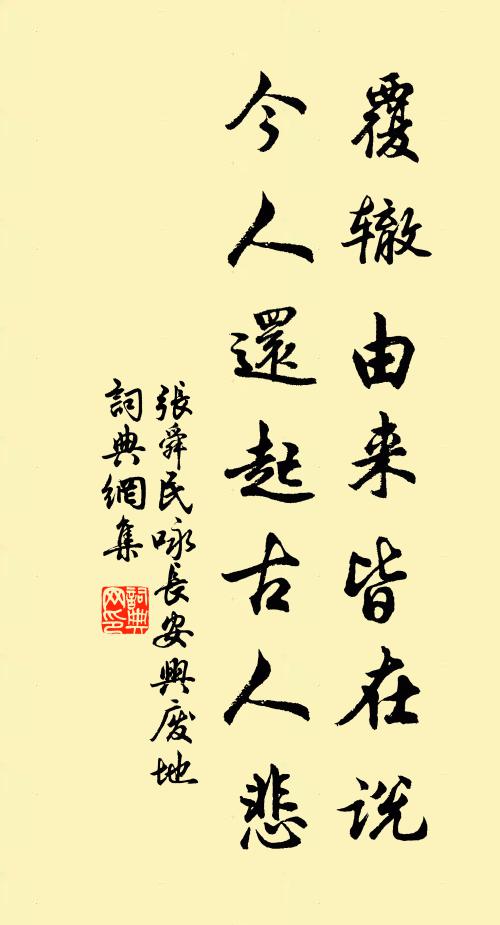 覆辙由来皆在说
今人還起古人悲
張舜民咏長安興废地
詞典網集
詞典
网印